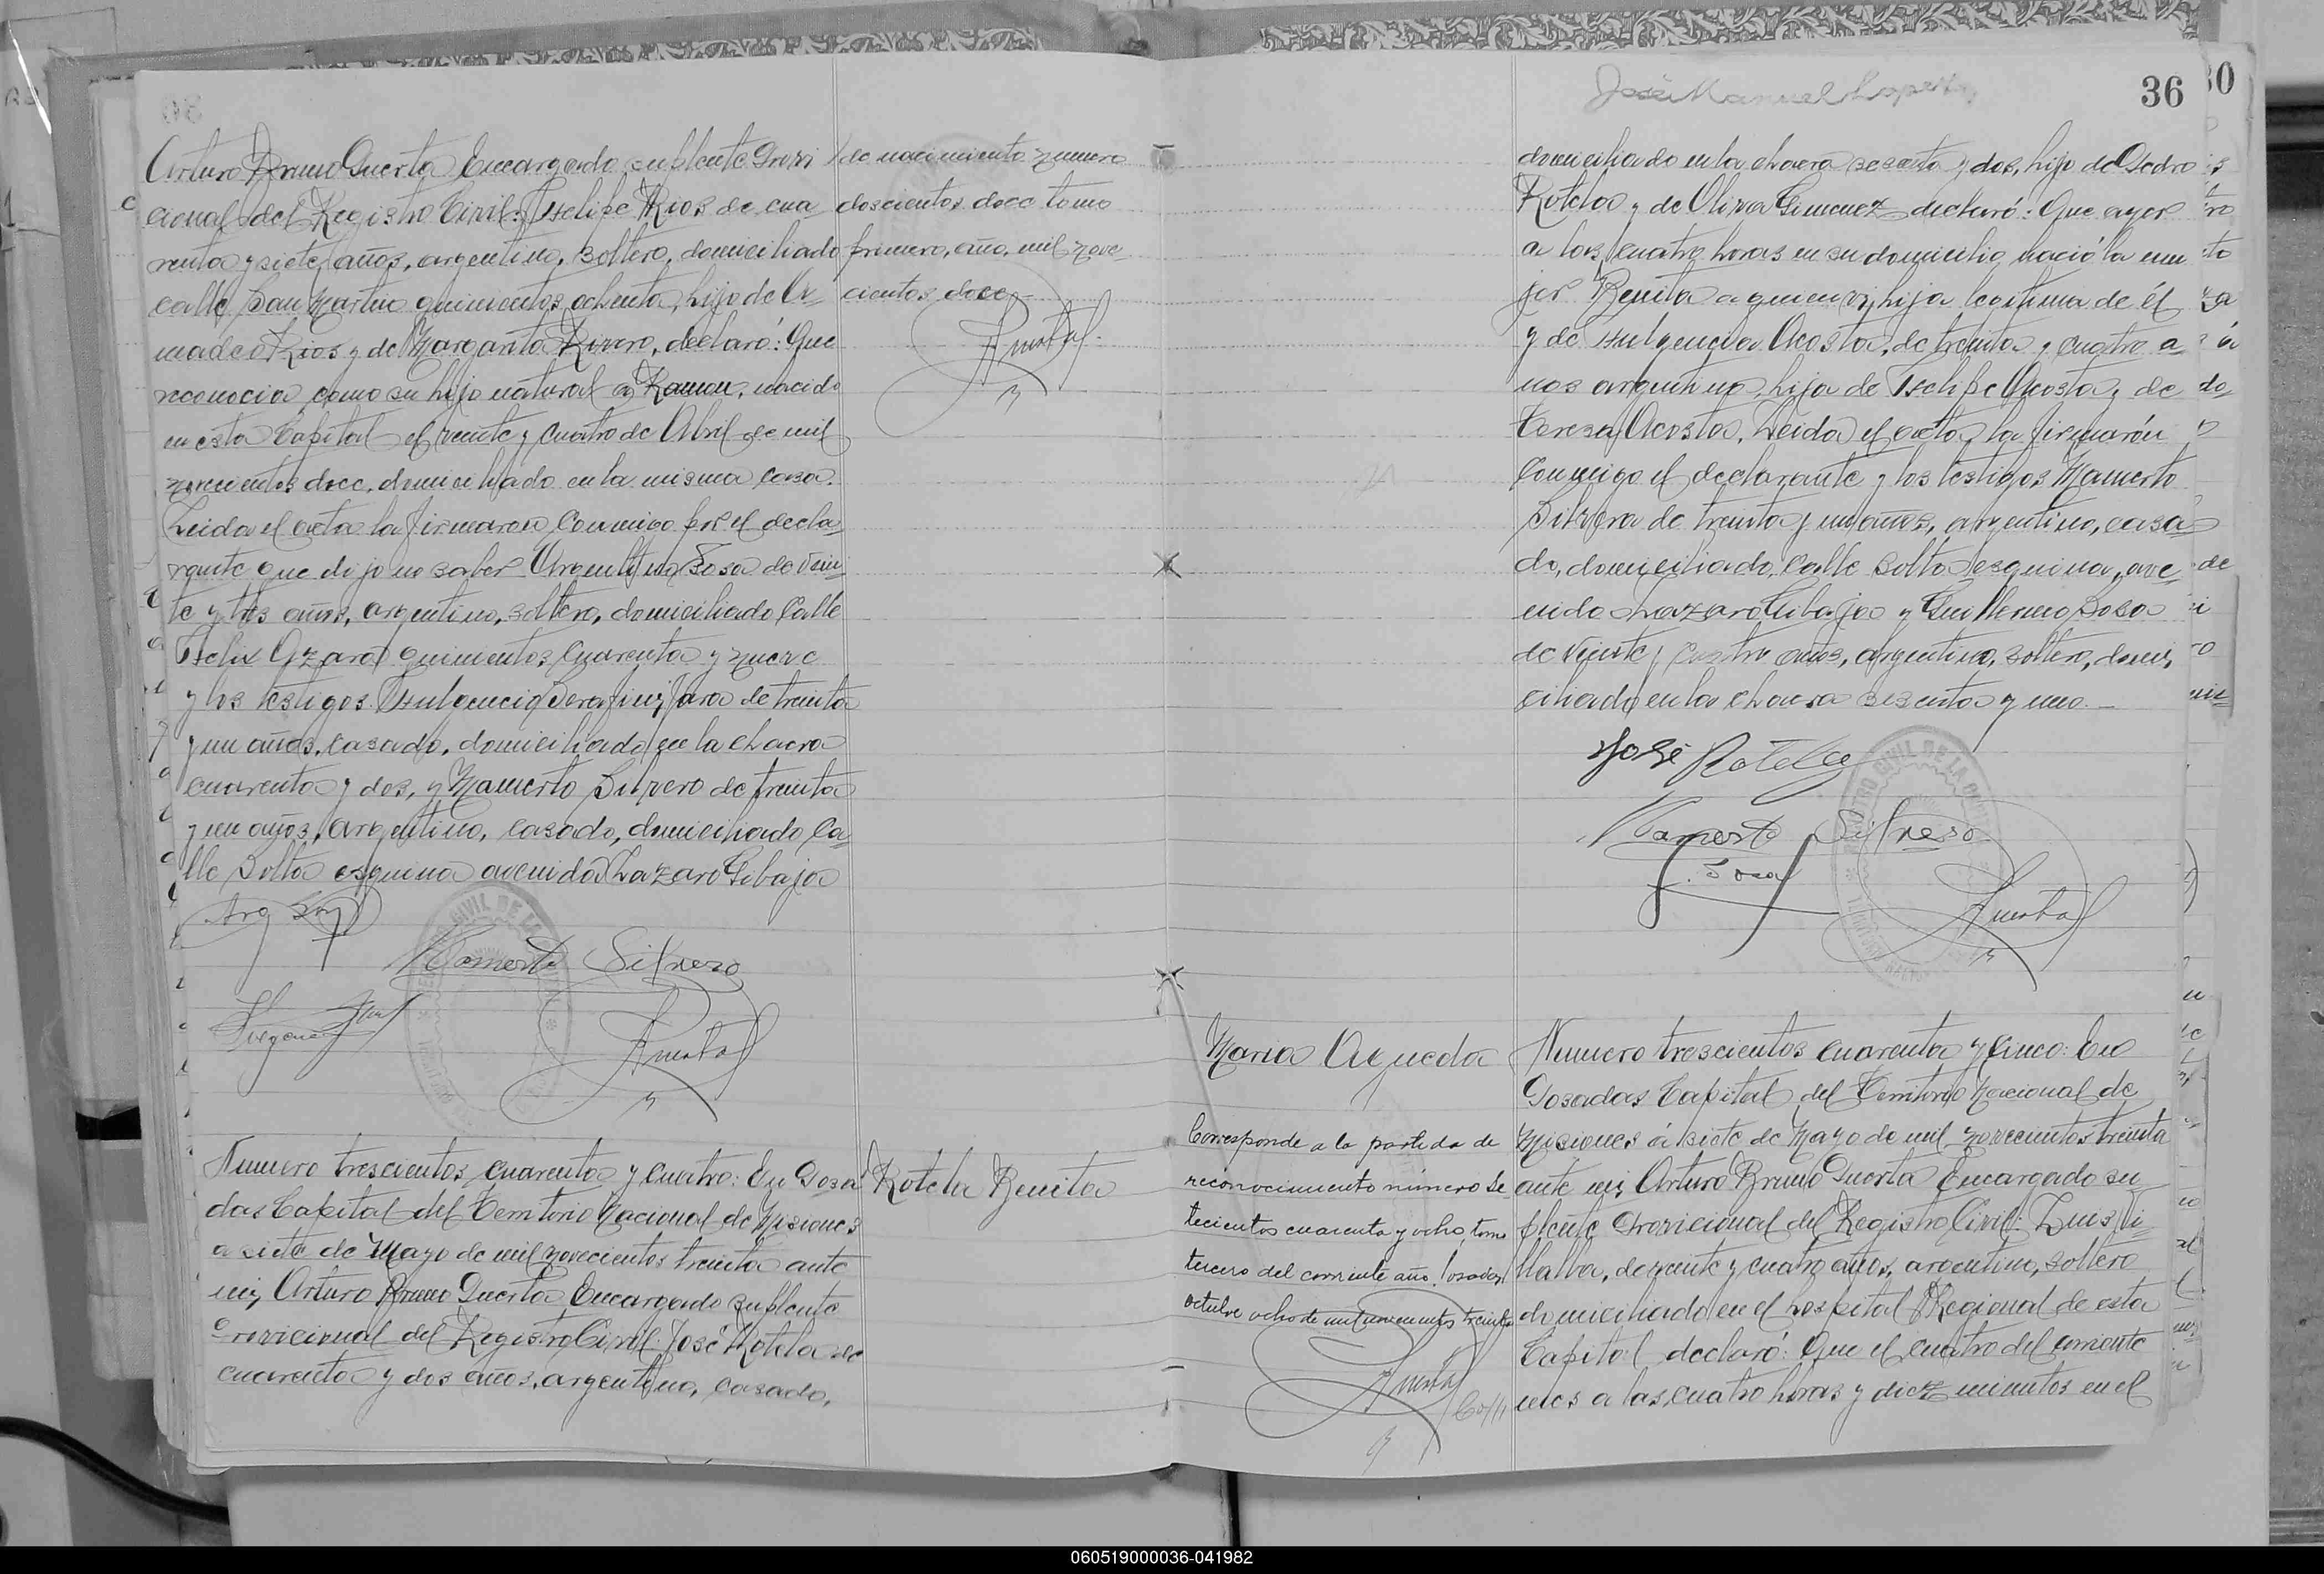 Arturo Bruno Puerta Encargado suplente Provi
cional del Registro Civil: Felipe Rios de cua
renta y siete años, argentino, soltero, domiciliado
calle San Martin quinientos ochenta, hijo de
Rios y de Margarita Rivero, declaró: Que
reconocia como su hijo natural a Ramon, nacido
en esta Capital el veinte y cuatro de Abril de mil
novecientos doce, domiciliado en la misma casa.
Leida el acta la firmaron conmigo por el decla
rante que dijo no saber Argentino Sosa de vein
te y tres años, argentino, soltero, domiciliado Calle
Felix Azara quinientos cuarenta y nueve
y los testigos Fulgencio Serafin Jara de treinta
y un años, casado, domiciliado en la chacra
cuarenta y dos, y Mamerto Silvero de treinta
y un años, argentino, casado, domiciliado Ca
lle Salta esquina avenida Lazaro Gibaja
Arg Sosa
Mamerto Silvero
de nacimiento numero
doscientos doce tomo
primero, año, mil nove
cientos doce
Numero trescientos cuarenta y cuatro: En Posa
das Capital del Territorio Nacional de Misiones
a siete de Mayo de mil novecientos treinta ante
mi, Arturo Bruno Puerta Encargado suplente
Provicional del Registro Civil: José Rotela de
cuarenta y dos años, argentino, casado,
Rotela Benita
José Manuel Lopez
36
30
domiciliado en la chacra sesenta y dos, hijo de Pedro
Rotela y de Oliva Gimenez declaró: Que ayer
a las cuatro horas en su domicilio nació la mu
jer Benita a quien vi, hija legitima de él
y de Fulgencia Acosta, de treinta y cuatro a
ños argentina, hija de Felipe Acosta y de
Teresa Acosta. Leida el acta, la firmarón
conmigo el declarante y los testigos Mamerto
Silvero de treinta y un años, argentino, casa
do, domiciliado, Calle Salta esquina, ave
nida Lazaro Gibaja y Guillermo Sosa
de veinte y cuatro años, argentino, soltero, domi
ciliado en la chacra sesenta y uno.
José Rotela
Mamerto Silvero
Sosa
Maria Agueda
Corresponde a la partida de
reconocimiento número se
tecientos cuarenta y ocho, tomo
tercero del corriente año. Posadas,
octubre ocho de mil novecientos treinta
Numero trescientos cuarenta y cinco: En
Posadas Capital del Territorio Nacional de
Misiones á siete de Mayo de mil novecientos treinta
ante mi, Arturo Bruno Puerta Encargado su
plente Provicional del Registro Civil: Luis Vi
llalba, de veinte y cuatro años, argentino, soltero
domiciliado en el hospital Regional de esta
Capital declaró: Que el cuatro del corriente
mes a las cuatro horas y diez minutos en el
060519000036-041982